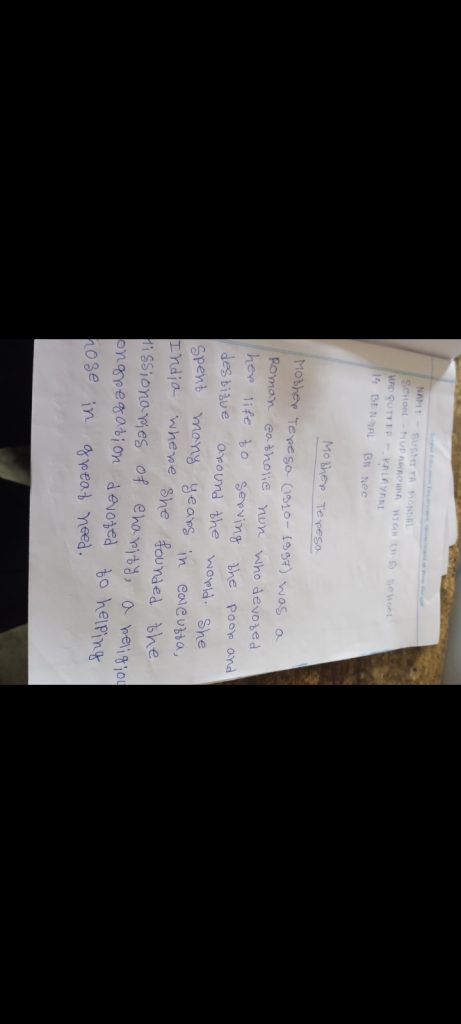 NAME - SUSMITA MONDAL
SCHOOL - HIGH (H.S) SCHOOL
- KALAYANI
14 BENGAL BN NCC
Mother Teresa
Mother Teresa (1910-1997) was a
Roman catholic nun who devoted
her life to serving the poor and
destitue around the world. She
spent many years in calcutta,
India where she founded the
issionaries of charity, a religiou
ongregation devoted to helping
hose in great need.